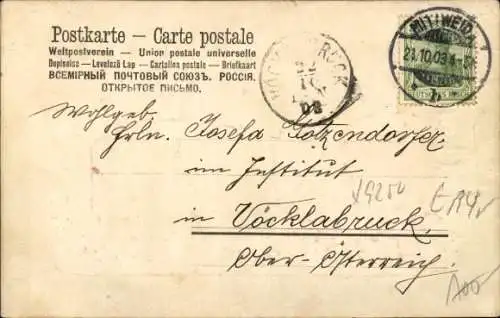 Postkarte – Carte postale
Weltpostverein – Union postale universelle
Dopisnice – Levelező Lap – Cartolina postale – Briefkaart
ВСЕМІРНЫЙ ПОЧТОВЫЙ СОЮЗЪ. РОССІЯ.
ОТКРЫТОЕ ПИСЬМО.
MITTWEIDA
21.10.03
03
Wohlgeb.
Frln. Josefa Lotzendorfer
im Institut
in Vöcklabruck,
Ober-Österreich.
100